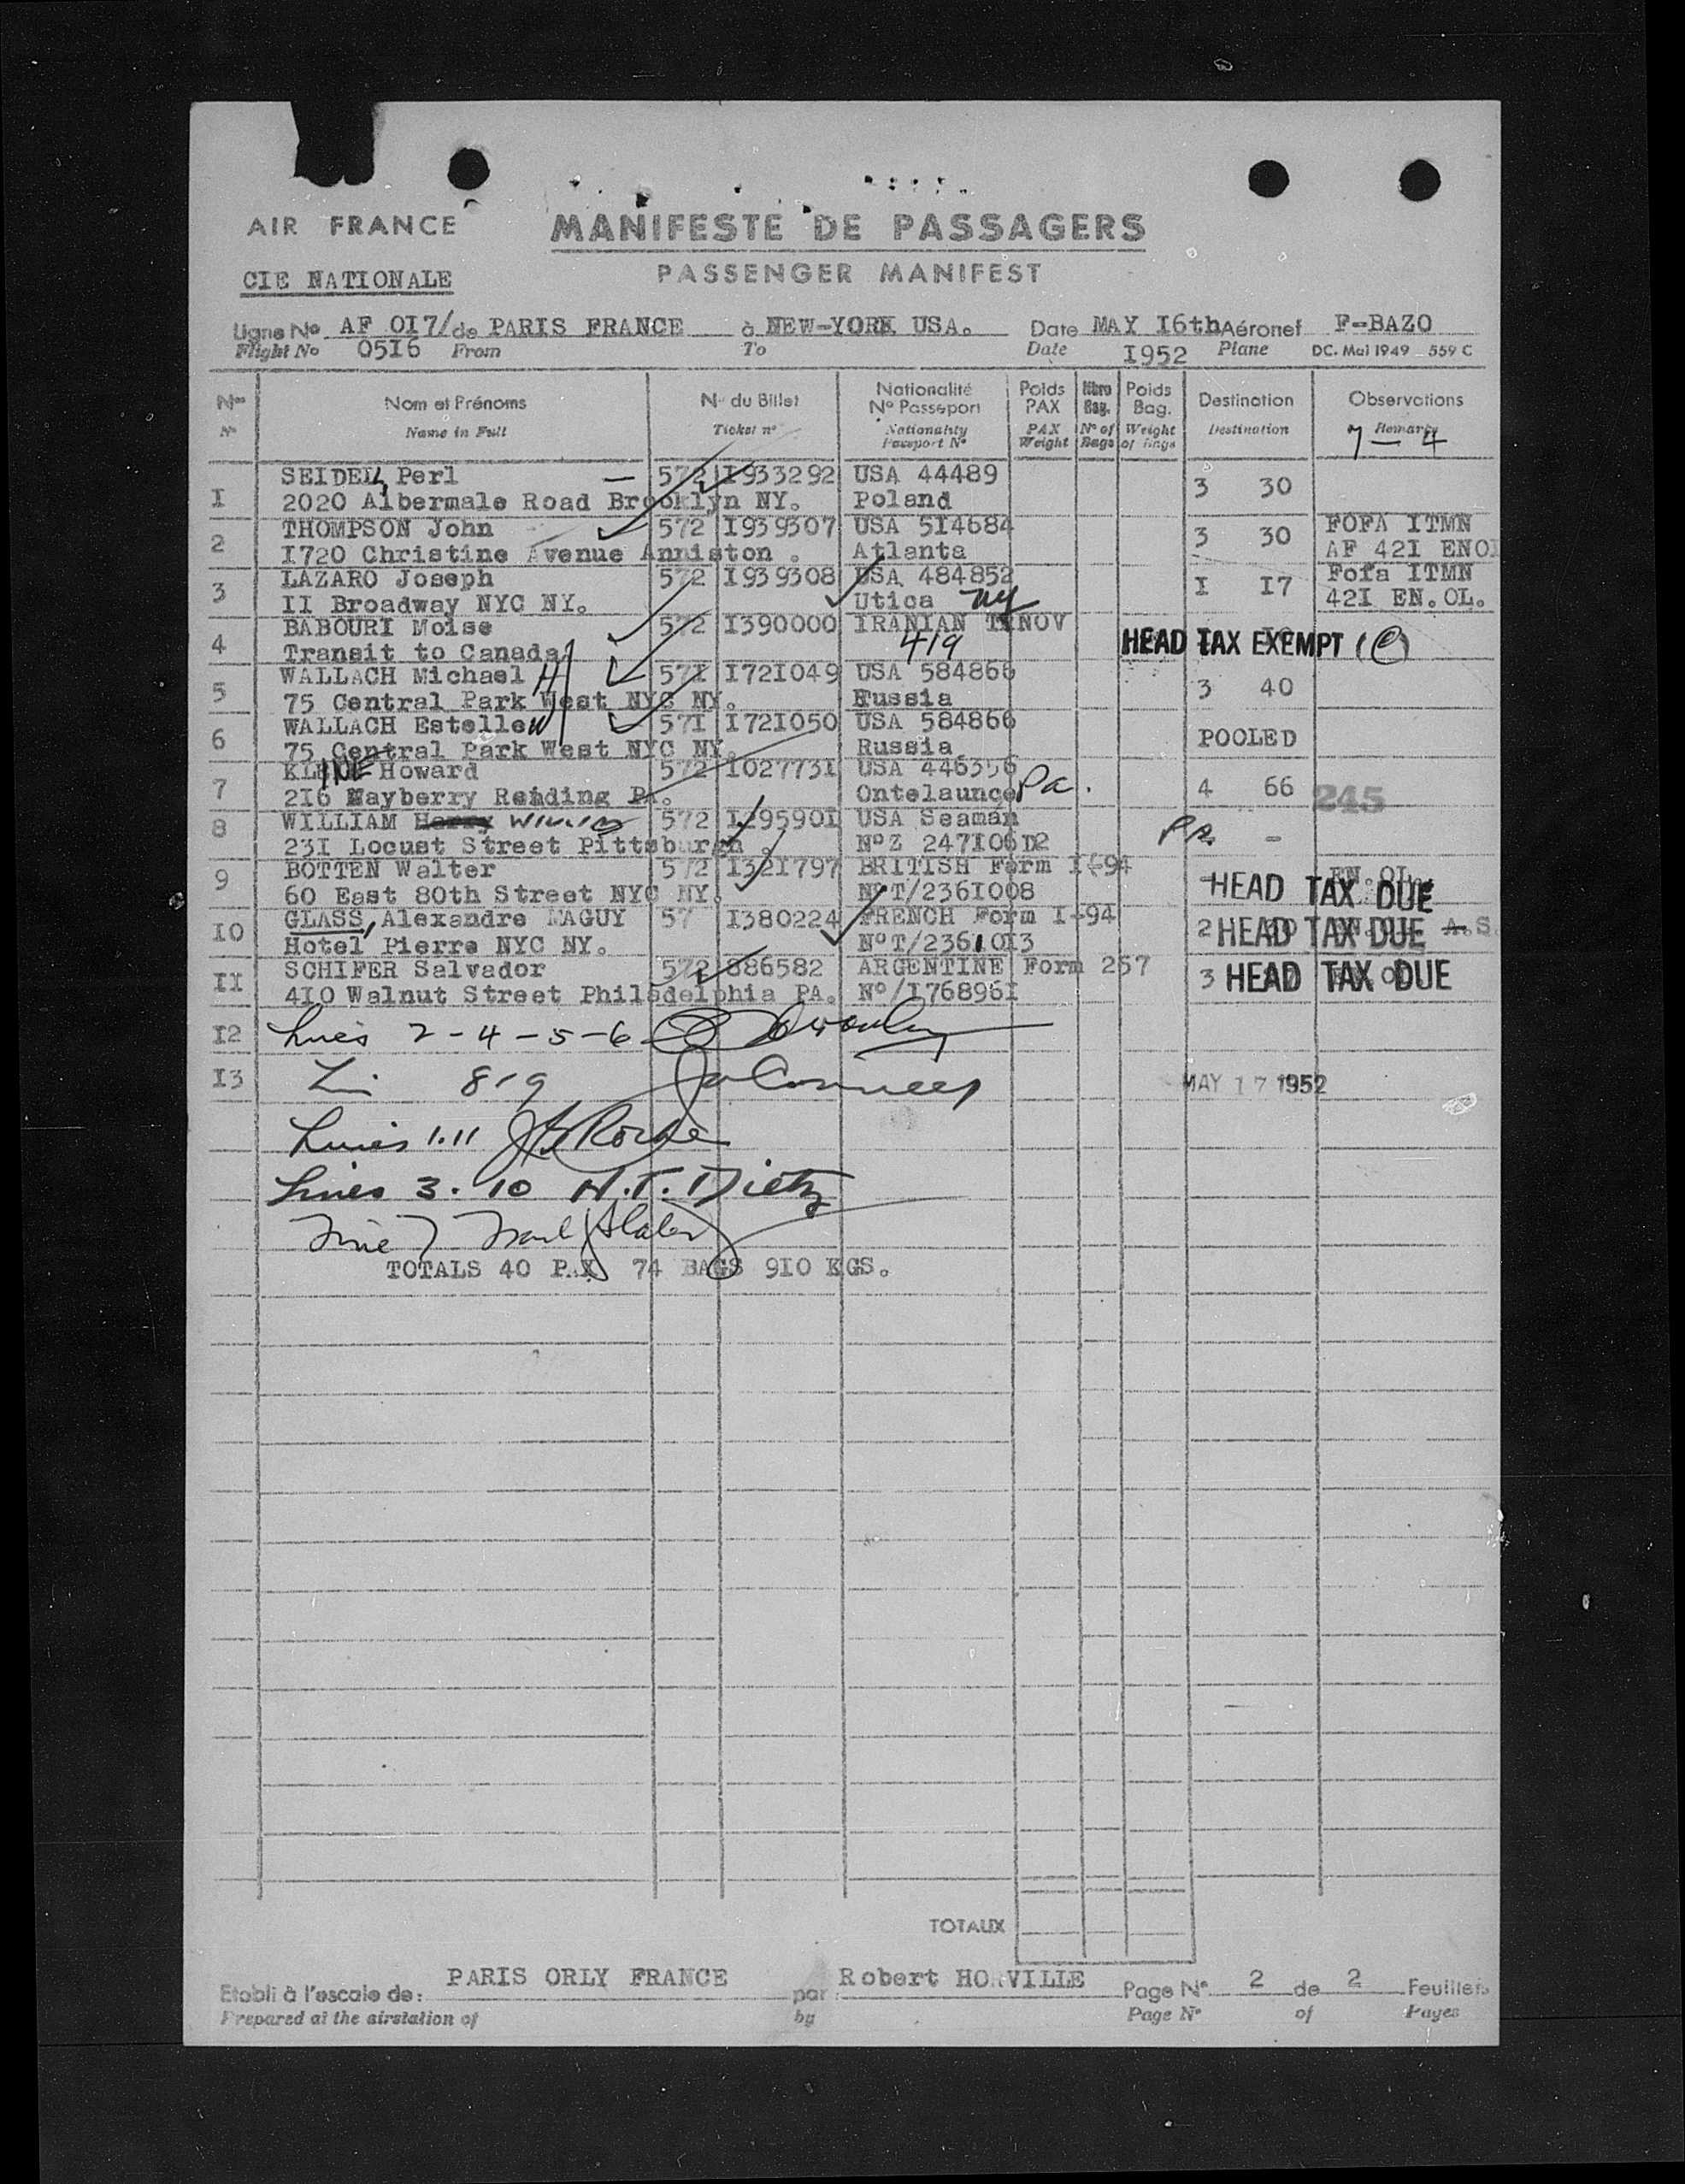 AIR FRANCE MANIFESTE DE PASSAGERS
CIE NATIONALE PASSENGER MANIFEST
Ligne No AF OI7/ de PARIS FRANCE à NEW-YORK USA. Date MAY I6th Aéronef F-BAZO
Flight No O5I6 From To Date I952 Plane DC. Mai 1949 559 C
Nos Nom et Prénoms No du Billet Nationalité No Passeport Poids PAX Nbre Bag. Poids Bag. Destination Observations
No Name in Full Ticket no Nationality Passport No PAX Weight No of Bags Weight of Bags Destination Remarks
7 — 4
I SEIDEL, Perl — 572 I933292 USA 44489 3 30
2020 Albermale Road Brooklyn NY. Poland
2 THOMPSON John 572 I939307 USA 5I4684 3 30 FOFA ITMN
I720 Christine Avenue Anniston . Atlanta AF 42I ENOL
3 LAZARO Joseph 572 I939308 USA 484852 I I7 Fofa ITMN
II Broadway NYC NY. Utica NY 42I EN.OL.
4 BABOURI Moise 572 I390000 IRANIAN
Transit to Canada 419 HEAD TAX EXEMPT (C)
5 WALLACH Michael H 57I I72I049 USA 584866 3 40
75 Central Park West NYC NY. Russia
6 WALLACH Estelle W 57I I72I050 USA 584866 POOLED
75 Central Park West NYC NY. Russia
7 KLINE Howard 572 I02773I USA 446356 4 66 245
2I6 Mayberry Reading PA. Ontelaunce Pa.
8 WILLIAM Harry William 572 I29590I USA Seaman Pa. -
23I Locust Street Pittsburgh . No Z 247I06D2
9 BOTTEN Walter 572 I32I797 BRITISH Form I-94 EN.OL.
60 East 80th Street NYC NY. No T/236I008 HEAD TAX DUE
I0 GLASS, Alexandre MAGUY 57 I380224 FRENCH Form I-94 2 HEAD TAX DUE A.S.
Hotel Pierre NYC NY. No T/2361013
II SCHIFER Salvador 572 886582 ARGENTINE Form 257 3 HEAD TAX DUE
4I0 Walnut Street Philadelphia PA. No/I76896I
I2 Lines 2-4-5-6
I3 Li 8-9 MAY 17 1952
Lines 1.11
Lines 3. 10 H.T. Dietz
Line 7
TOTALS 40 PAX 74 BAGS 9I0 KGS.
TOTAUX
Etabli à l'escale de: PARIS ORLY FRANCE par Robert HORVILLE Page No 2 de 2 Feuillets
Prepared at the airstation of by Page No of Pages